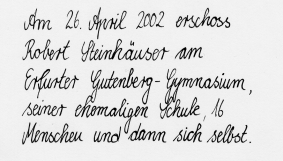 Am 26. April 2002 erschoss
Robert Steinhäuser am
Erfurter Gutenberg-Gymnasium,
seiner ehemaligen Schule, 16
Menschen und dann sich selbst.